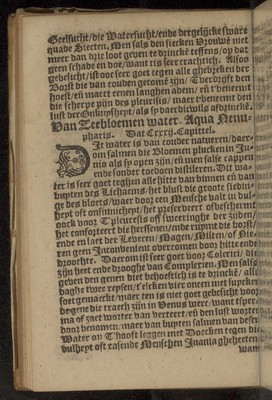 Geelsucht / die Watersucht / ende dergelijcke sware
quade Siecten. Men sals den siecken Vrouwē niet
meer dan drie loot geven te drinckē teffens / op dat
geen schade en doe / want tis seer crachtich. Alsoo
gebesicht / ist ooc seer goet tegen alle ghebreken der
Borst die van couden gecomē zijn / Tverdrijft den
hoest / en maect eenen langhen adem / en
die scherpe pijn des pleurisijs / maer
lust der
Van Zeebloemen water. Aqua Nenu-
pharis. Dat Cxxxj. Capittel.
Dit water is van couder natueren / daer-
om salmen die Bloemen plucken in Ju-
nio als sy open zijn / en men salse cappen
ende sonder toedoen distilleren. Dit wa-
ter is seer goet teghen alle hitte van binnen en van
buyten des Lichaems / het blust die groote siedin-
ge des bloets / waer door een Mensche valt in dul-
heyt oft onsinnicheyt / het preserveert oft beschermt
oock voor Tpleuresijs oft sweeringhe der zijden /
het conforteert die herssenen / ende ruymt die borst /
ende en laet der Leveren / Magen / Milten / of Nie-
ren geen Inconvenient overcomen door hitte ende
droochte. Daerom ist seer goet voor Colerici / die
zijn heet ende drooghe van Complexien. Men salse
geven den genen diet behoeftich is te drinckē / alle
daghe twee reysen / telcken vier oncen met suycker
soet gemaeckt / maer ten is niet goet gebesicht voor
degene die traech zijn in Venus werc / want
na of zaet worter van verteert / en den lust worter
door benomen / maer van buyten salmen van desen
Water op Thooft leggen met Doecken tegen die
dulheyt oft rasende Menschen Inania gheheeten
want